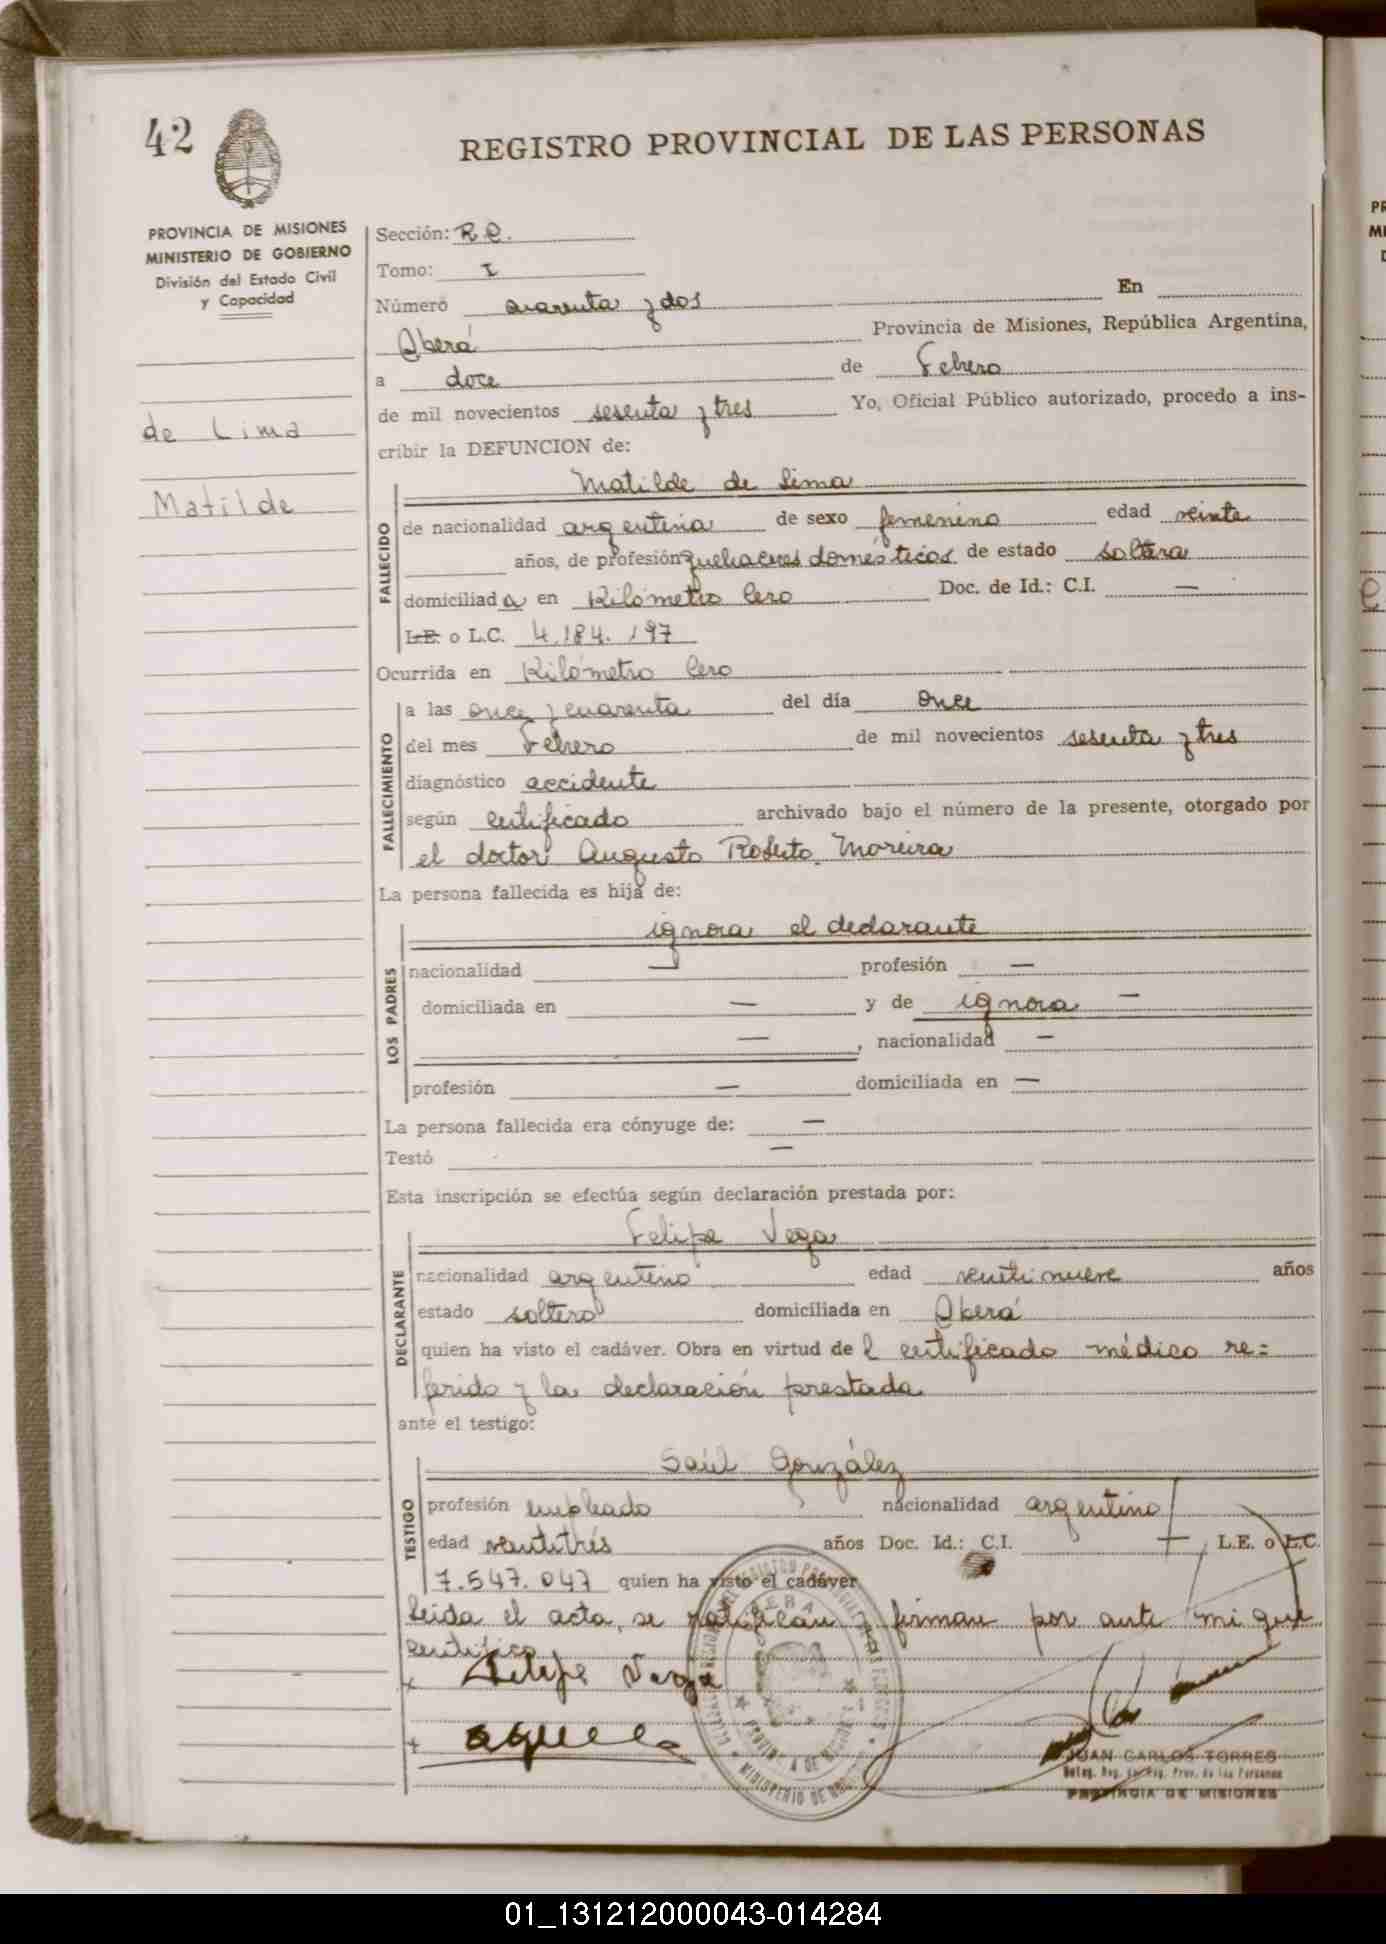 42
REGISTRO PROVINCIAL DE LAS PERSONAS
PROVINCIA DE MISIONES
MINISTERIO DE GOBIERNO
División del Estado Civil
y Capacidad
de Lima
Matilde
Sección: R.C.
Tomo: I
Número cuarenta y dos En
Oberá Provincia de Misiones, República Argentina,
a doce de Febrero
de mil novecientos sesenta y tres Yo, Oficial Público autorizado, procedo a ins-
cribir la DEFUNCION de:
Matilde de Lima
FALLECIDO
de nacionalidad argentina de sexo femenino edad veinte
años, de profesión quehaceres domésticos de estado soltera
domiciliada en Kilómetro Cero Doc. de Id.: C.I. —
L.E. o L.C. 4.184.197
Ocurrida en Kilómetro Cero
FALLECIMIENTO
a las once y cuarenta del día once
del mes Febrero de mil novecientos sesenta y tres
diagnóstico accidente
según certificado archivado bajo el número de la presente, otorgado por
el doctor Augusto Roberto Moreira
La persona fallecida es hija de:
LOS PADRES
ignora el declarante
nacionalidad — profesión —
domiciliada en — y de ignora —
— , nacionalidad —
profesión — domiciliada en —
La persona fallecida era cónyuge de: —
Testó —
Esta inscripción se efectúa según declaración prestada por:
DECLARANTE
Felipe Vega
nacionalidad argentino edad veintinueve años
estado soltero domiciliada en Oberá
quien ha visto el cadáver. Obra en virtud del certificado médico re=
ferido y la declaración prestada
ante el testigo:
TESTIGO
Saúl González
profesión empleado nacionalidad argentino
edad veintitrés años Doc. Id.: C.I. — L.E. o L.C.
7.547.047 quien ha visto el cadáver
Leida el acta, se ratifican y firman por ante mi que
certifico
Felipe Vega
JUAN CARLOS TORRES
Deleg. Reg. del Reg. Prov. de las Personas
PROVINCIA DE MISIONES
01_131212000043-014284